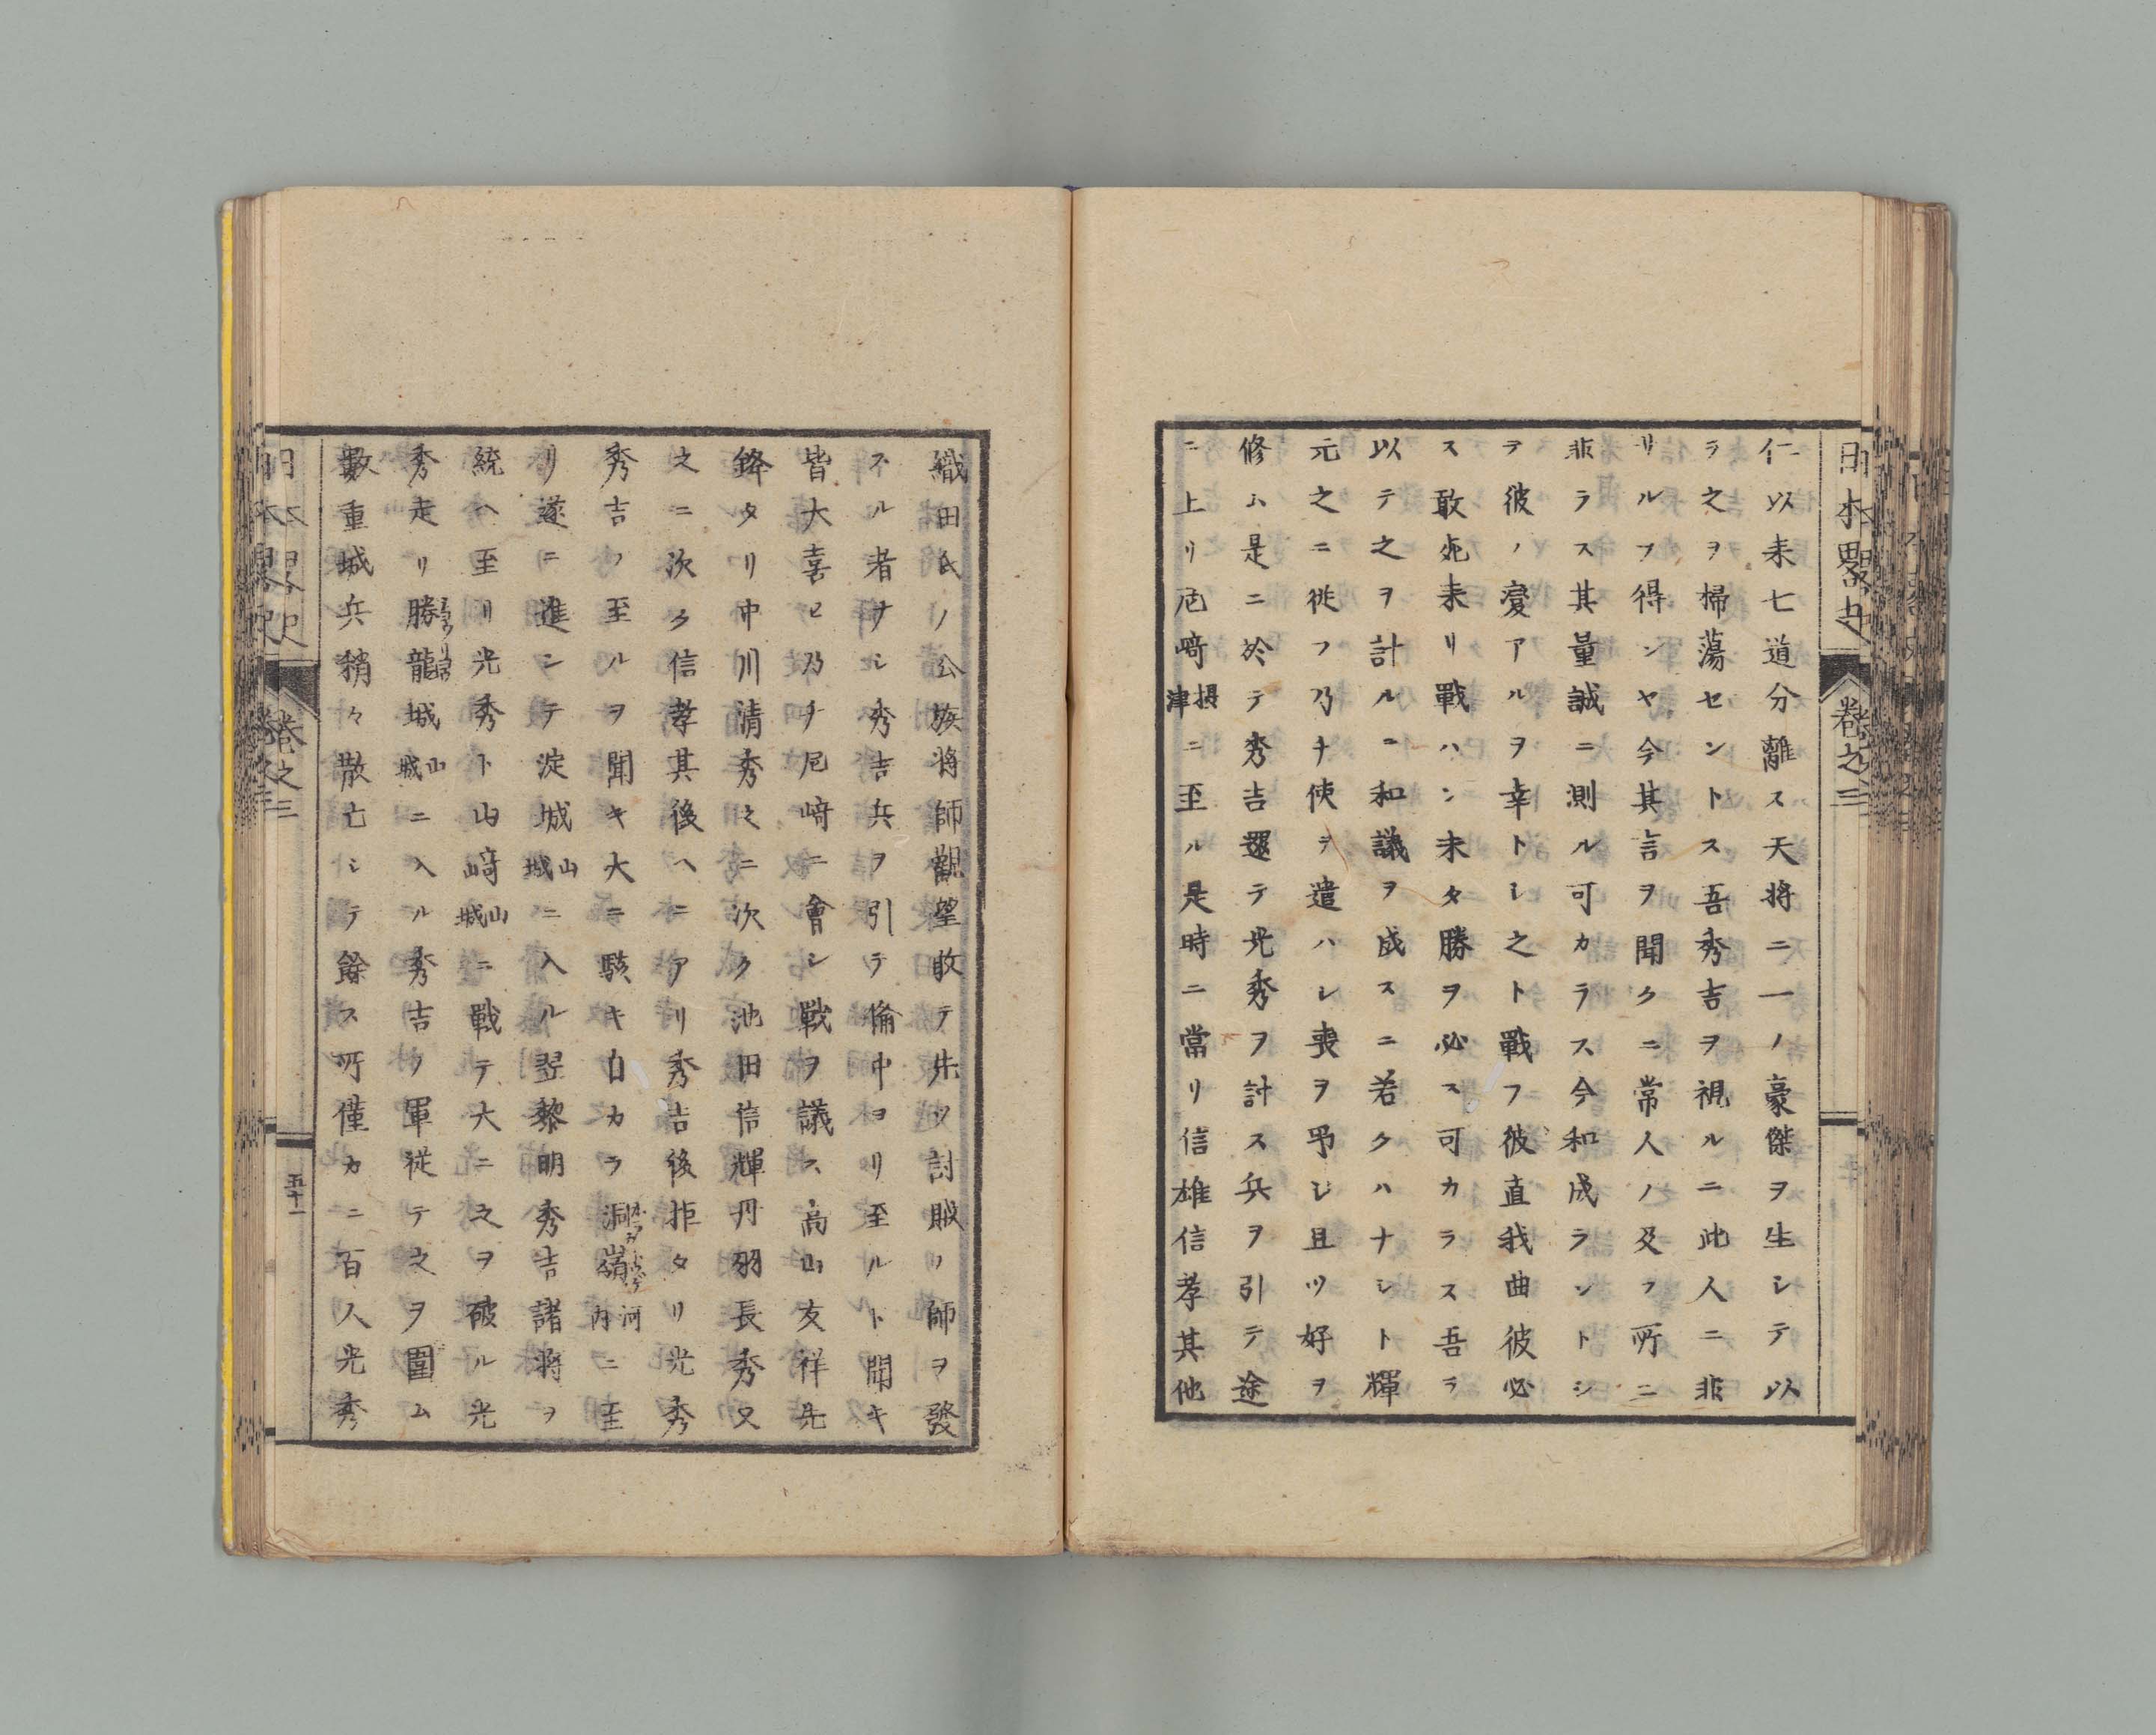 日本畧史 卷之三
仁以来七道分離ス天将ニ一ノ豪傑ヲ生シテ以
ラ之ヲ掃蕩セントス吾秀吉ヲ視ルニ此人ニ非
リルフ得ンヤ今其言ヲ聞クニ常人ノ及フ所ニ
非ラス其量誠ニ測ル可カラス今和成ラントシ
ヲ彼ノ変アルヲ幸トレ之ト戰フ彼直我曲彼必
ス敢死来リ戰ハン未タ勝ヲ必ス可カラス吾ラ
以テ之ヲ計ルニ和議ヲ成スニ若クハナシト輝
元之ニ従フ乃チ使ヲ遣ハレ喪ヲ弔シ且ツ好ヲ
修ム是ニ於テ秀吉還テ光秀ヲ計ス兵ヲ引テ途
ニ上リ尼﨑摂津ニ至ル是時ニ當リ信雄信孝其他
織田氏ノ公族将師觀望敢テ先ツ討賊ノ師ヲ發
スル者ナシ秀吉兵ヲ引テ備中ヨリ至ルト聞キ
皆大喜ヒ乃チ尼﨑ニ會シ戰ヲ議ス高山友祥先
鋒タリ中川清秀之ニ次ク池田信輝丹羽長秀又
之ニ次ク信孝其後ヘニアリ秀吉後拒タリ光秀
秀吉ノ至ルヲ聞キ大ニ駭キ自カラ洞嶺河内ニ至
リ遂ニ進ンテ淀城山城ニ入ル翌黎明秀吉諸将ヲ
統ヘ至リ光秀ト山﨑山城ニ戰テ大ニ之ヲ破ル光
秀走リ勝龍城山城ニ入ル秀吉ノ軍従テ之ヲ圍ム
數重城兵稍々散亡シテ餘ス所僅カニ百人光秀
日本畧史 卷之三 五十一